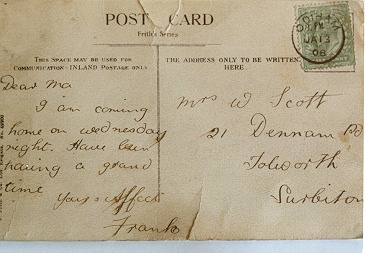 POST CARD
Frith's Series
THIS SPACE MAY BE USED FOR
COMMUNICATION · INLAND POSTAGE ONLY
THE ADDRESS ONLY TO BE WRITTEN
HERE.
JA 13
08
Dear Ma
I am coming
home on wednesday
night. Have been
having a grand
time
Yours Affect
Frank
Mrs W Scott
21 Dennam Rd
Tolworth
Surbiton